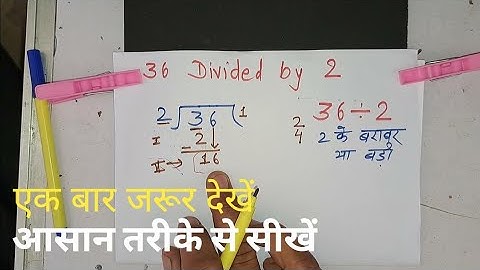 36 Divided by 2
2 36 1
I - 2
II → 16
36÷2
2
4
2 के बराबर
या बड़ा
एक बार जरूर देखें
आसान तरीके से सीखें